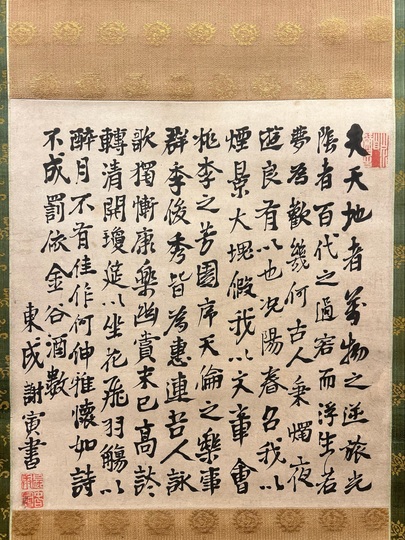 夫天地者萬物之逆旅光
陰者百代之過客而浮生若
夢為歡幾何古人秉燭夜
遊良有以也況陽春召我以
煙景大塊假我以文章會
桃李之芳園序天倫之樂事
群季俊秀皆為惠連吾人詠
歌獨慚康樂幽賞未已高談
轉清開瓊筵以坐花飛羽觴以
醉月不有佳作何伸雅懷如詩
不成罰依金谷酒數
東成謝寅書